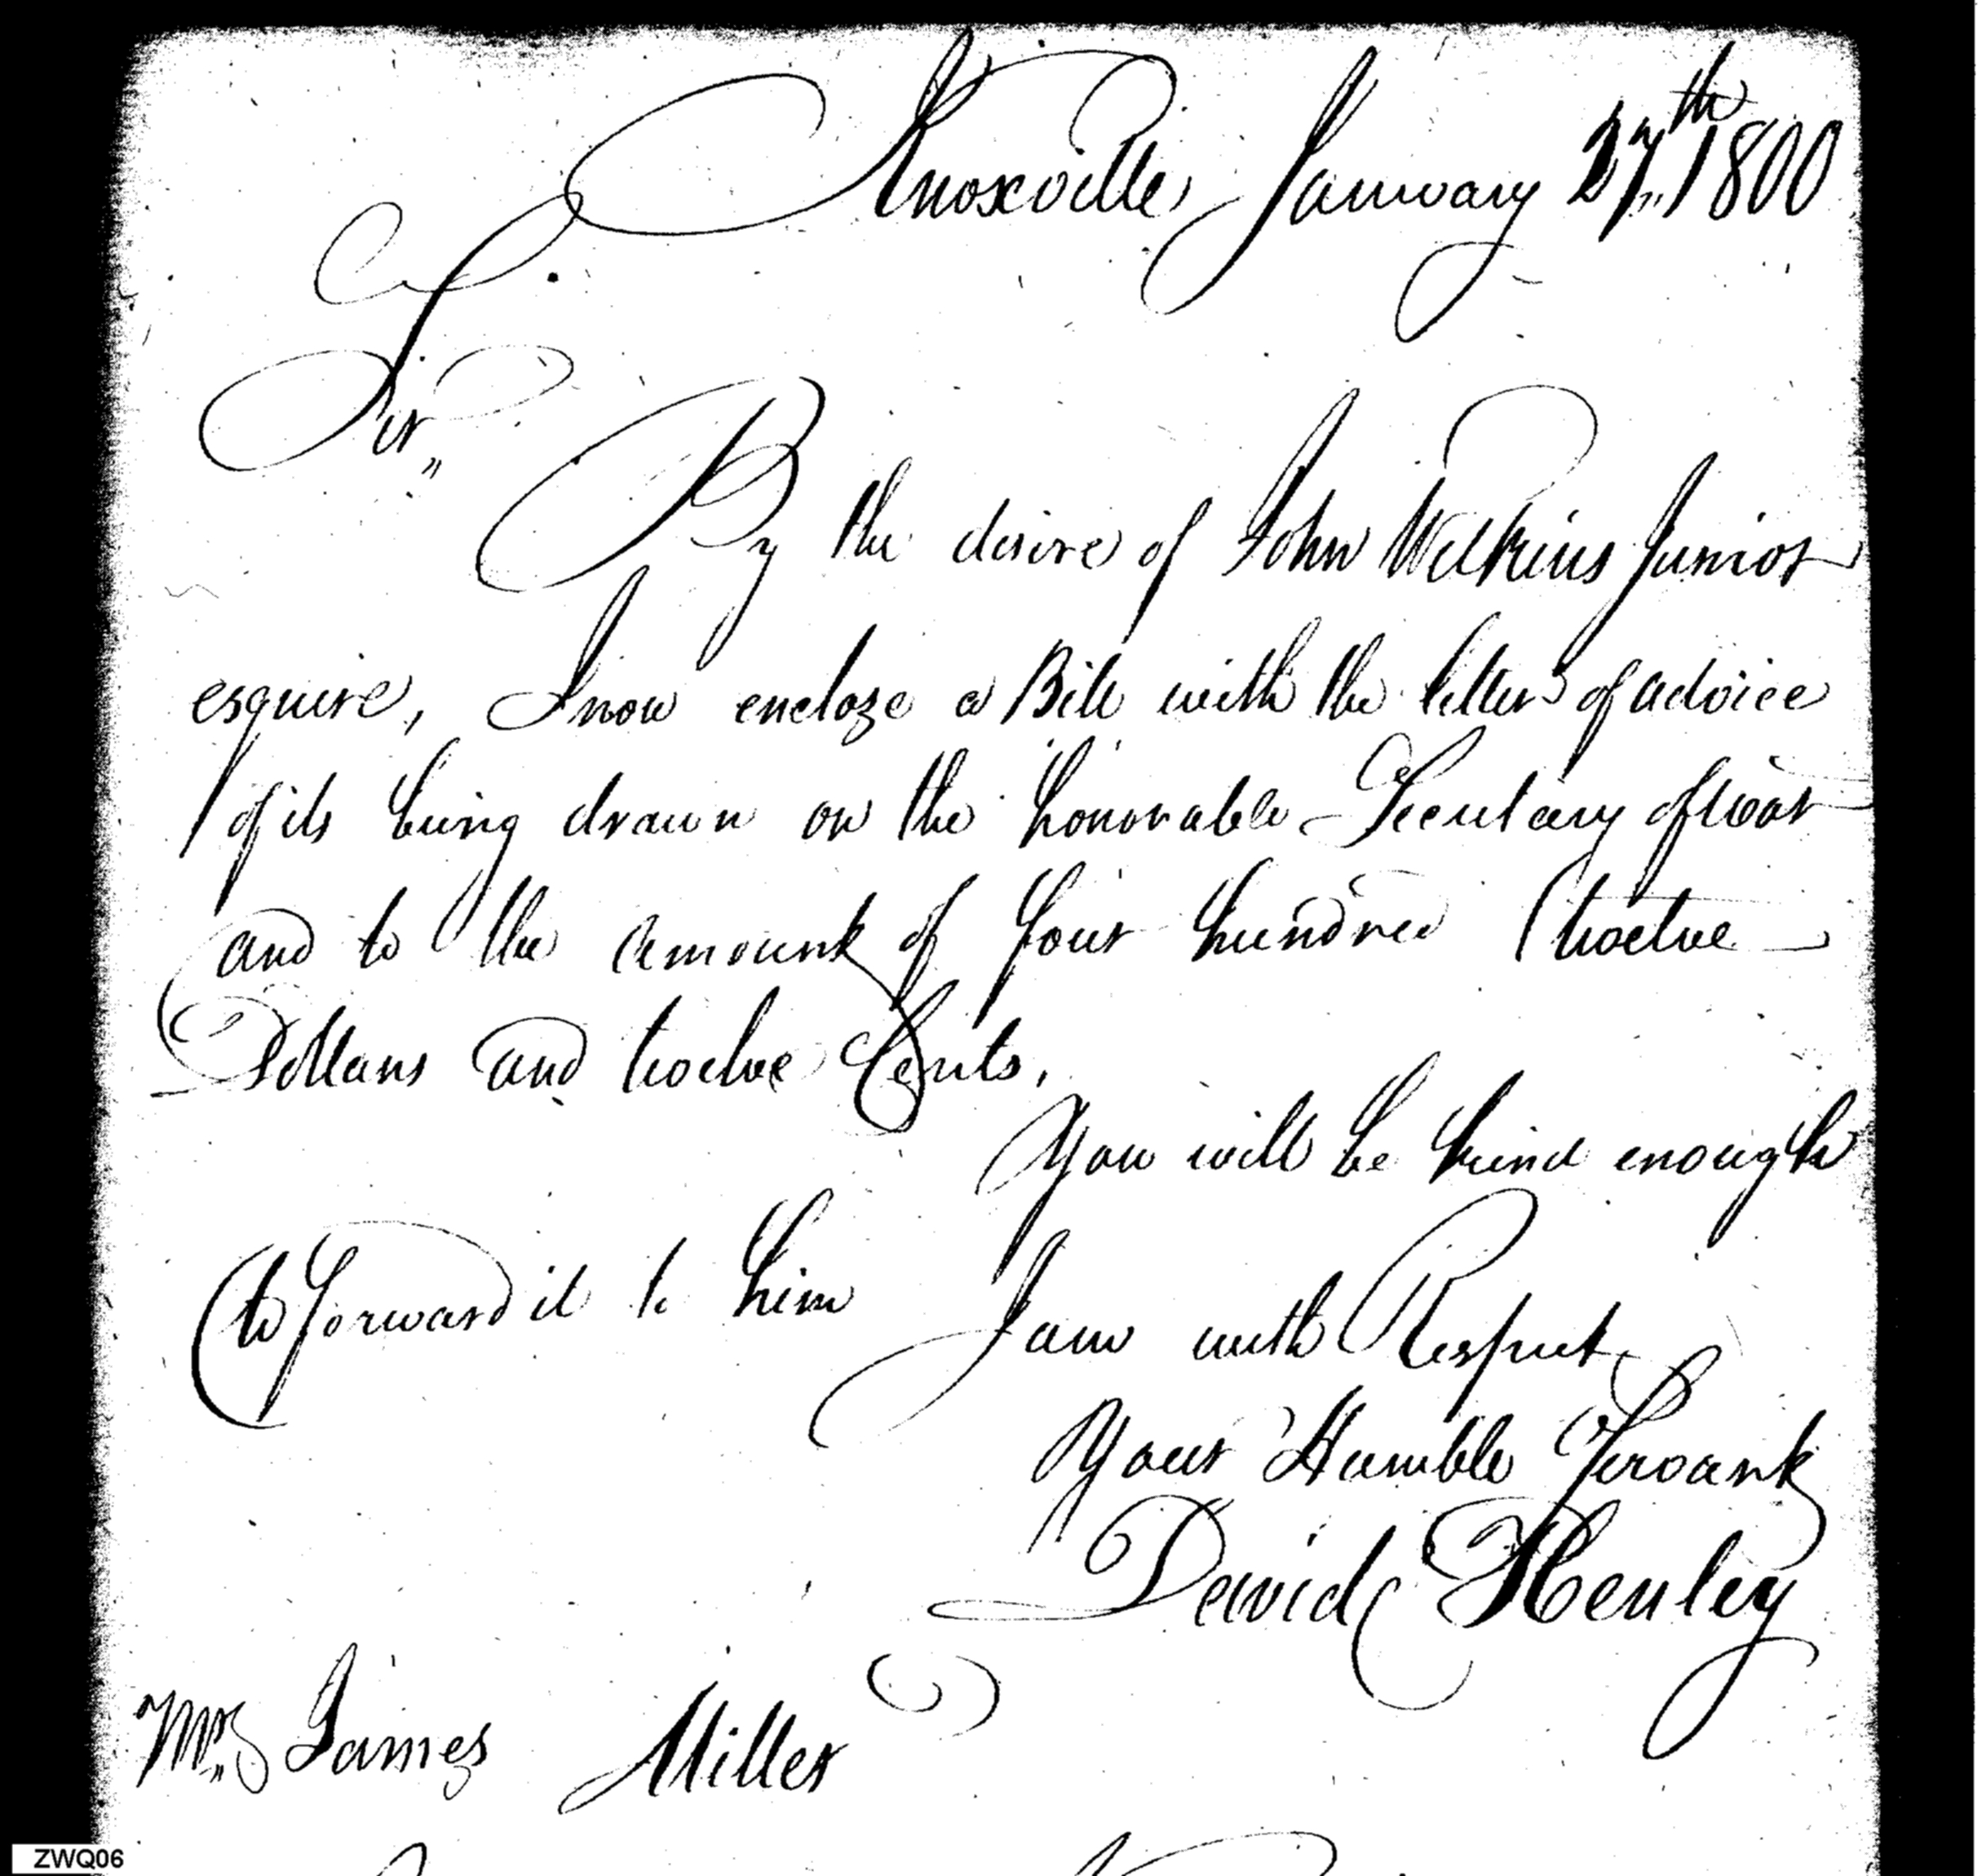 Knoxville January 27th 1800
Sir"
By the desire of John Wilkins Junior
esquire, I now encloze a Bill with the letter of advice
of its being drawn on the honorable Secretary of war
and to the amount of four hundred twelve
Dollars and twelve Cents,
You will be kind enough
to forward it to him
I am with Respect
Your Humble Servant
David Henley
Mr James Miller
ZWQ06